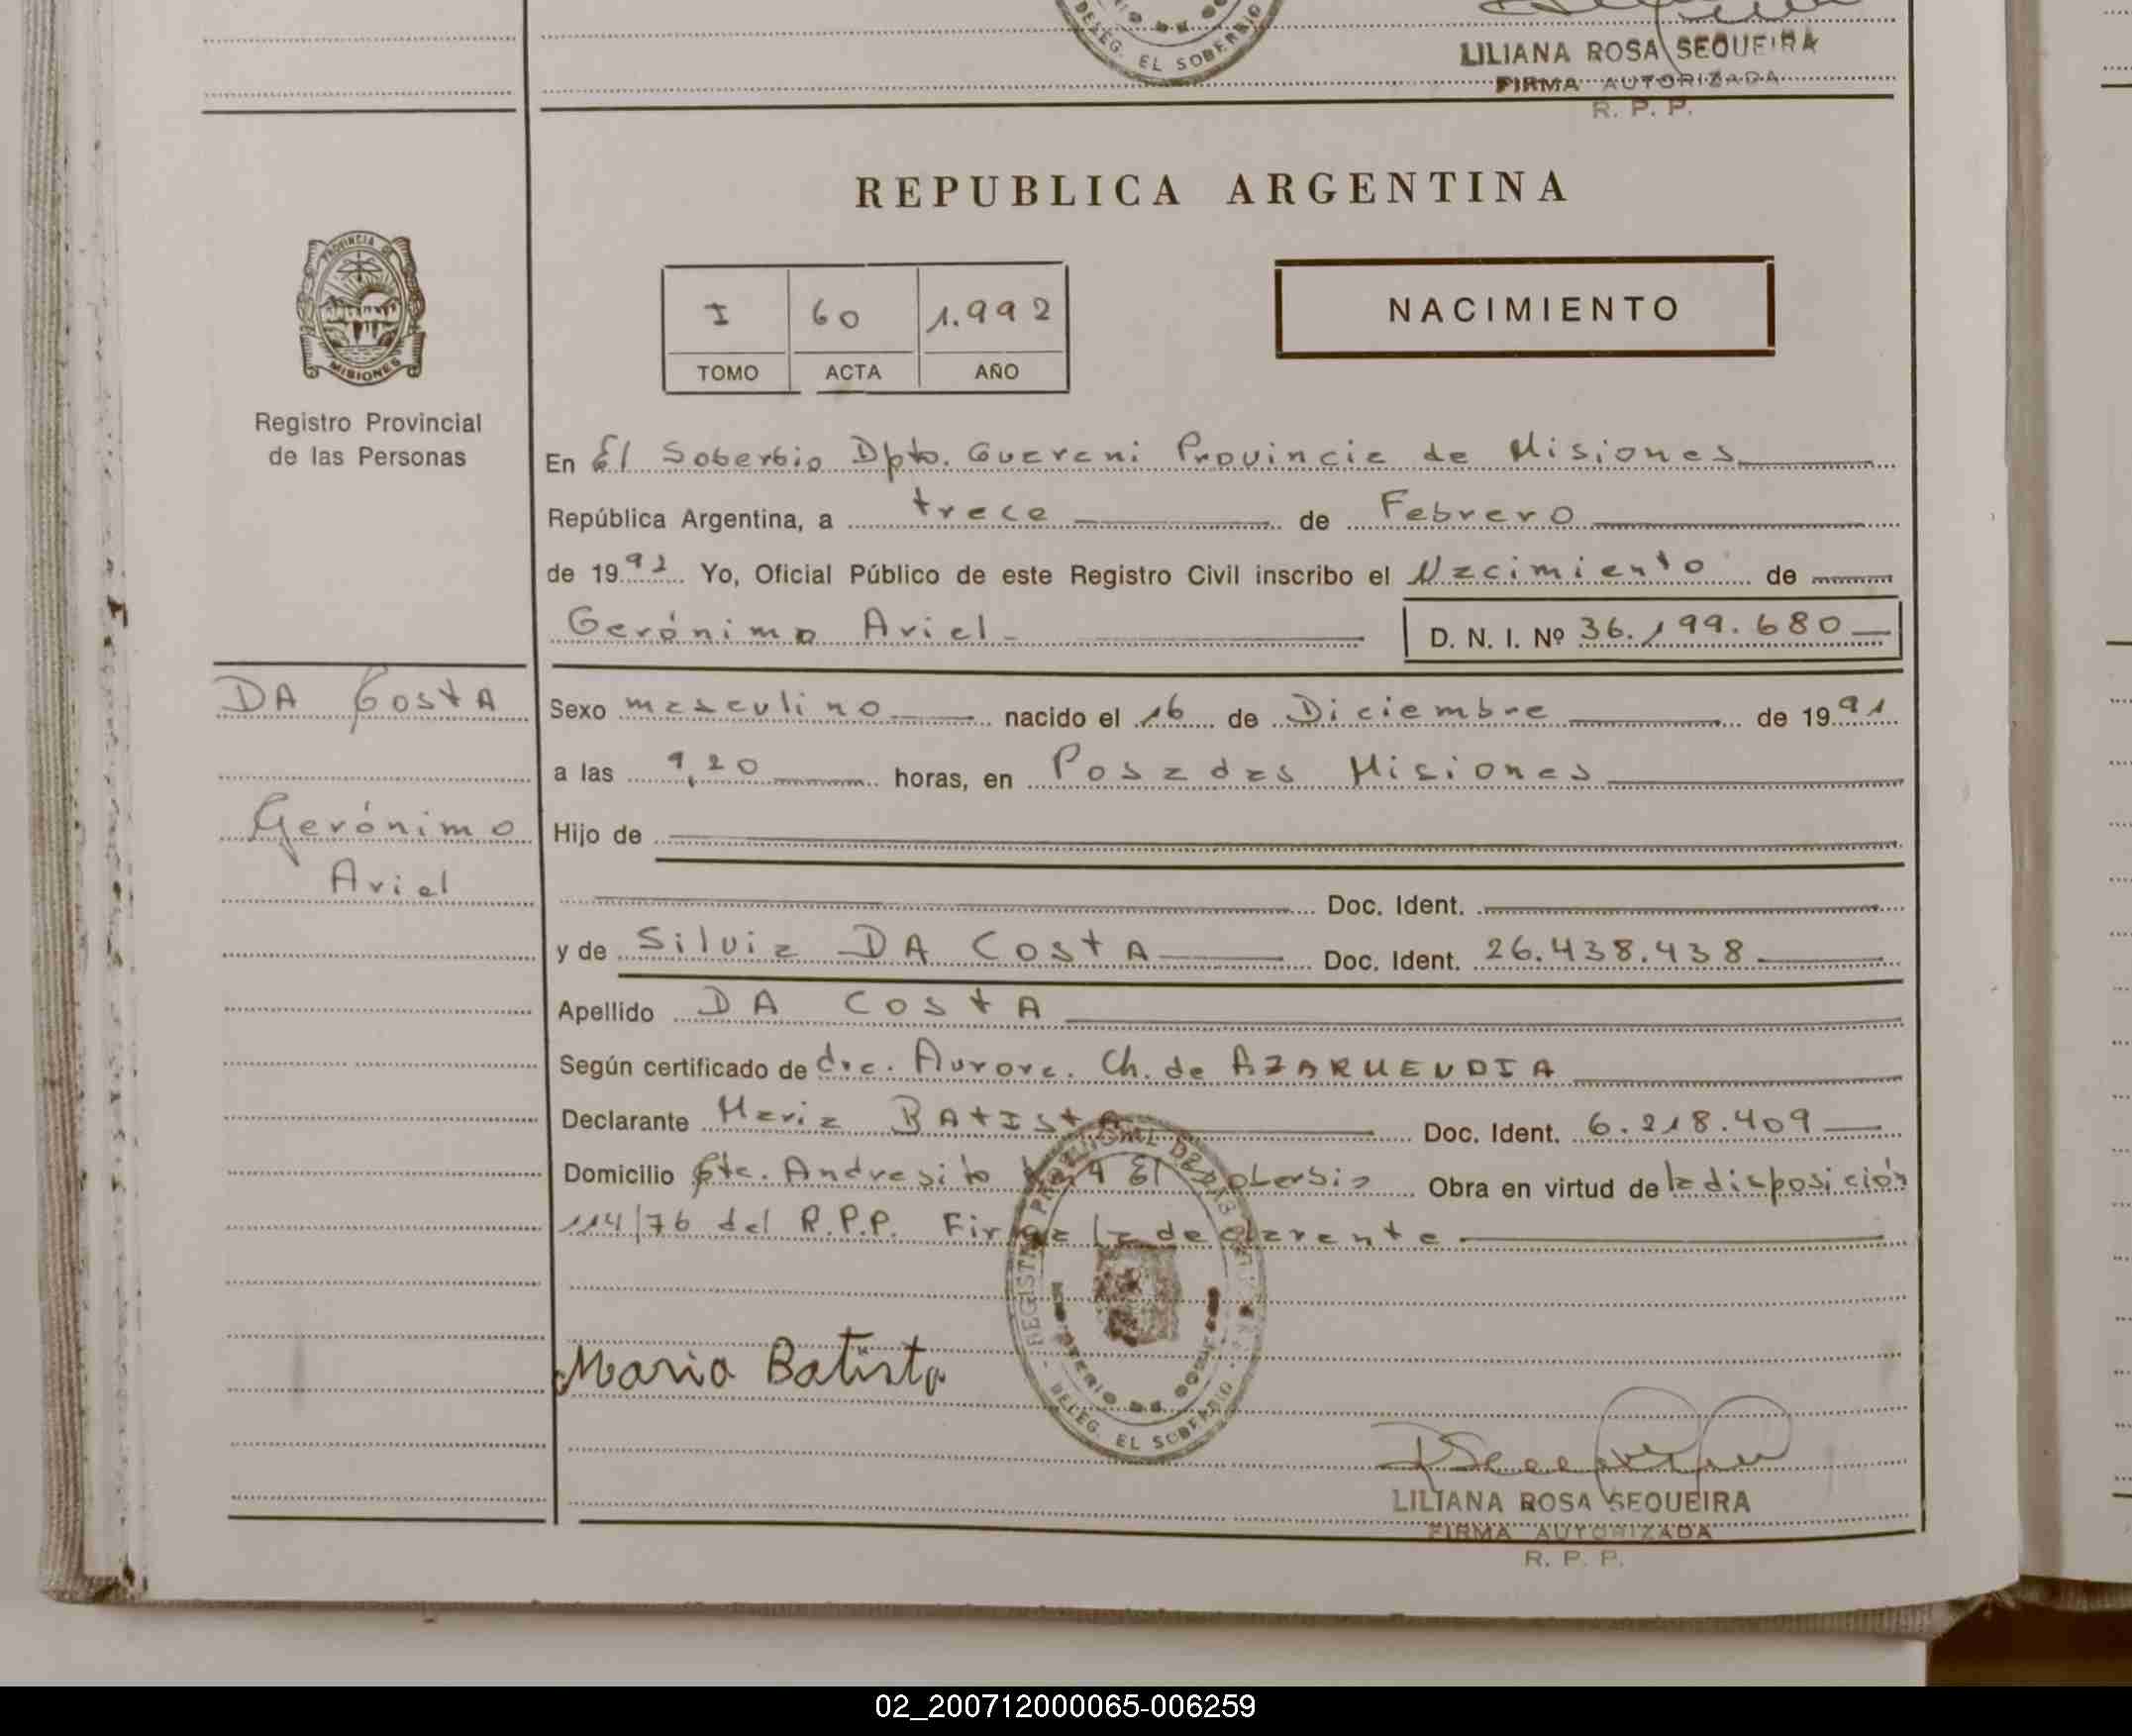 DELEG. EL SOBERBIO
LILIANA ROSA SEQUEIRA
FIRMA AUTORIZADA
R. P. P.
REPUBLICA ARGENTINA
PROVINCIA DE
MISIONES
Registro Provincial
de las Personas
I 60 1.992
TOMO ACTA AÑO
NACIMIENTO
En El Soberbio Dpto. Guarani Provincia de Misiones
República Argentina, a trece de Febrero
de 1992 Yo, Oficial Público de este Registro Civil inscribo el Nacimiento de
Gerónimo Ariel D. N. I. Nº 36.199.680
DA COSTA
Gerónimo
Ariel
Sexo masculino nacido el 16 de Diciembre de 1991
a las 9,20 horas, en Posadas Misiones
Hijo de
Doc. Ident.
y de Silvia DA COSTA Doc. Ident. 26.438.438
Apellido DA COSTA
Según certificado de dra. Aurora. Ch. de AZARMENDIA
Declarante Maria BATISTA Doc. Ident. 6.218.409
Domicilio Pte. Andresito 4 El Soberbio Obra en virtud de la disposición
114/76 del R.P.P. Firma la declarante
Maria Batista
DELEG. EL SOBERBIO
LILIANA ROSA SEQUEIRA
FIRMA AUTORIZADA
R. P. P.
02_200712000065-006259